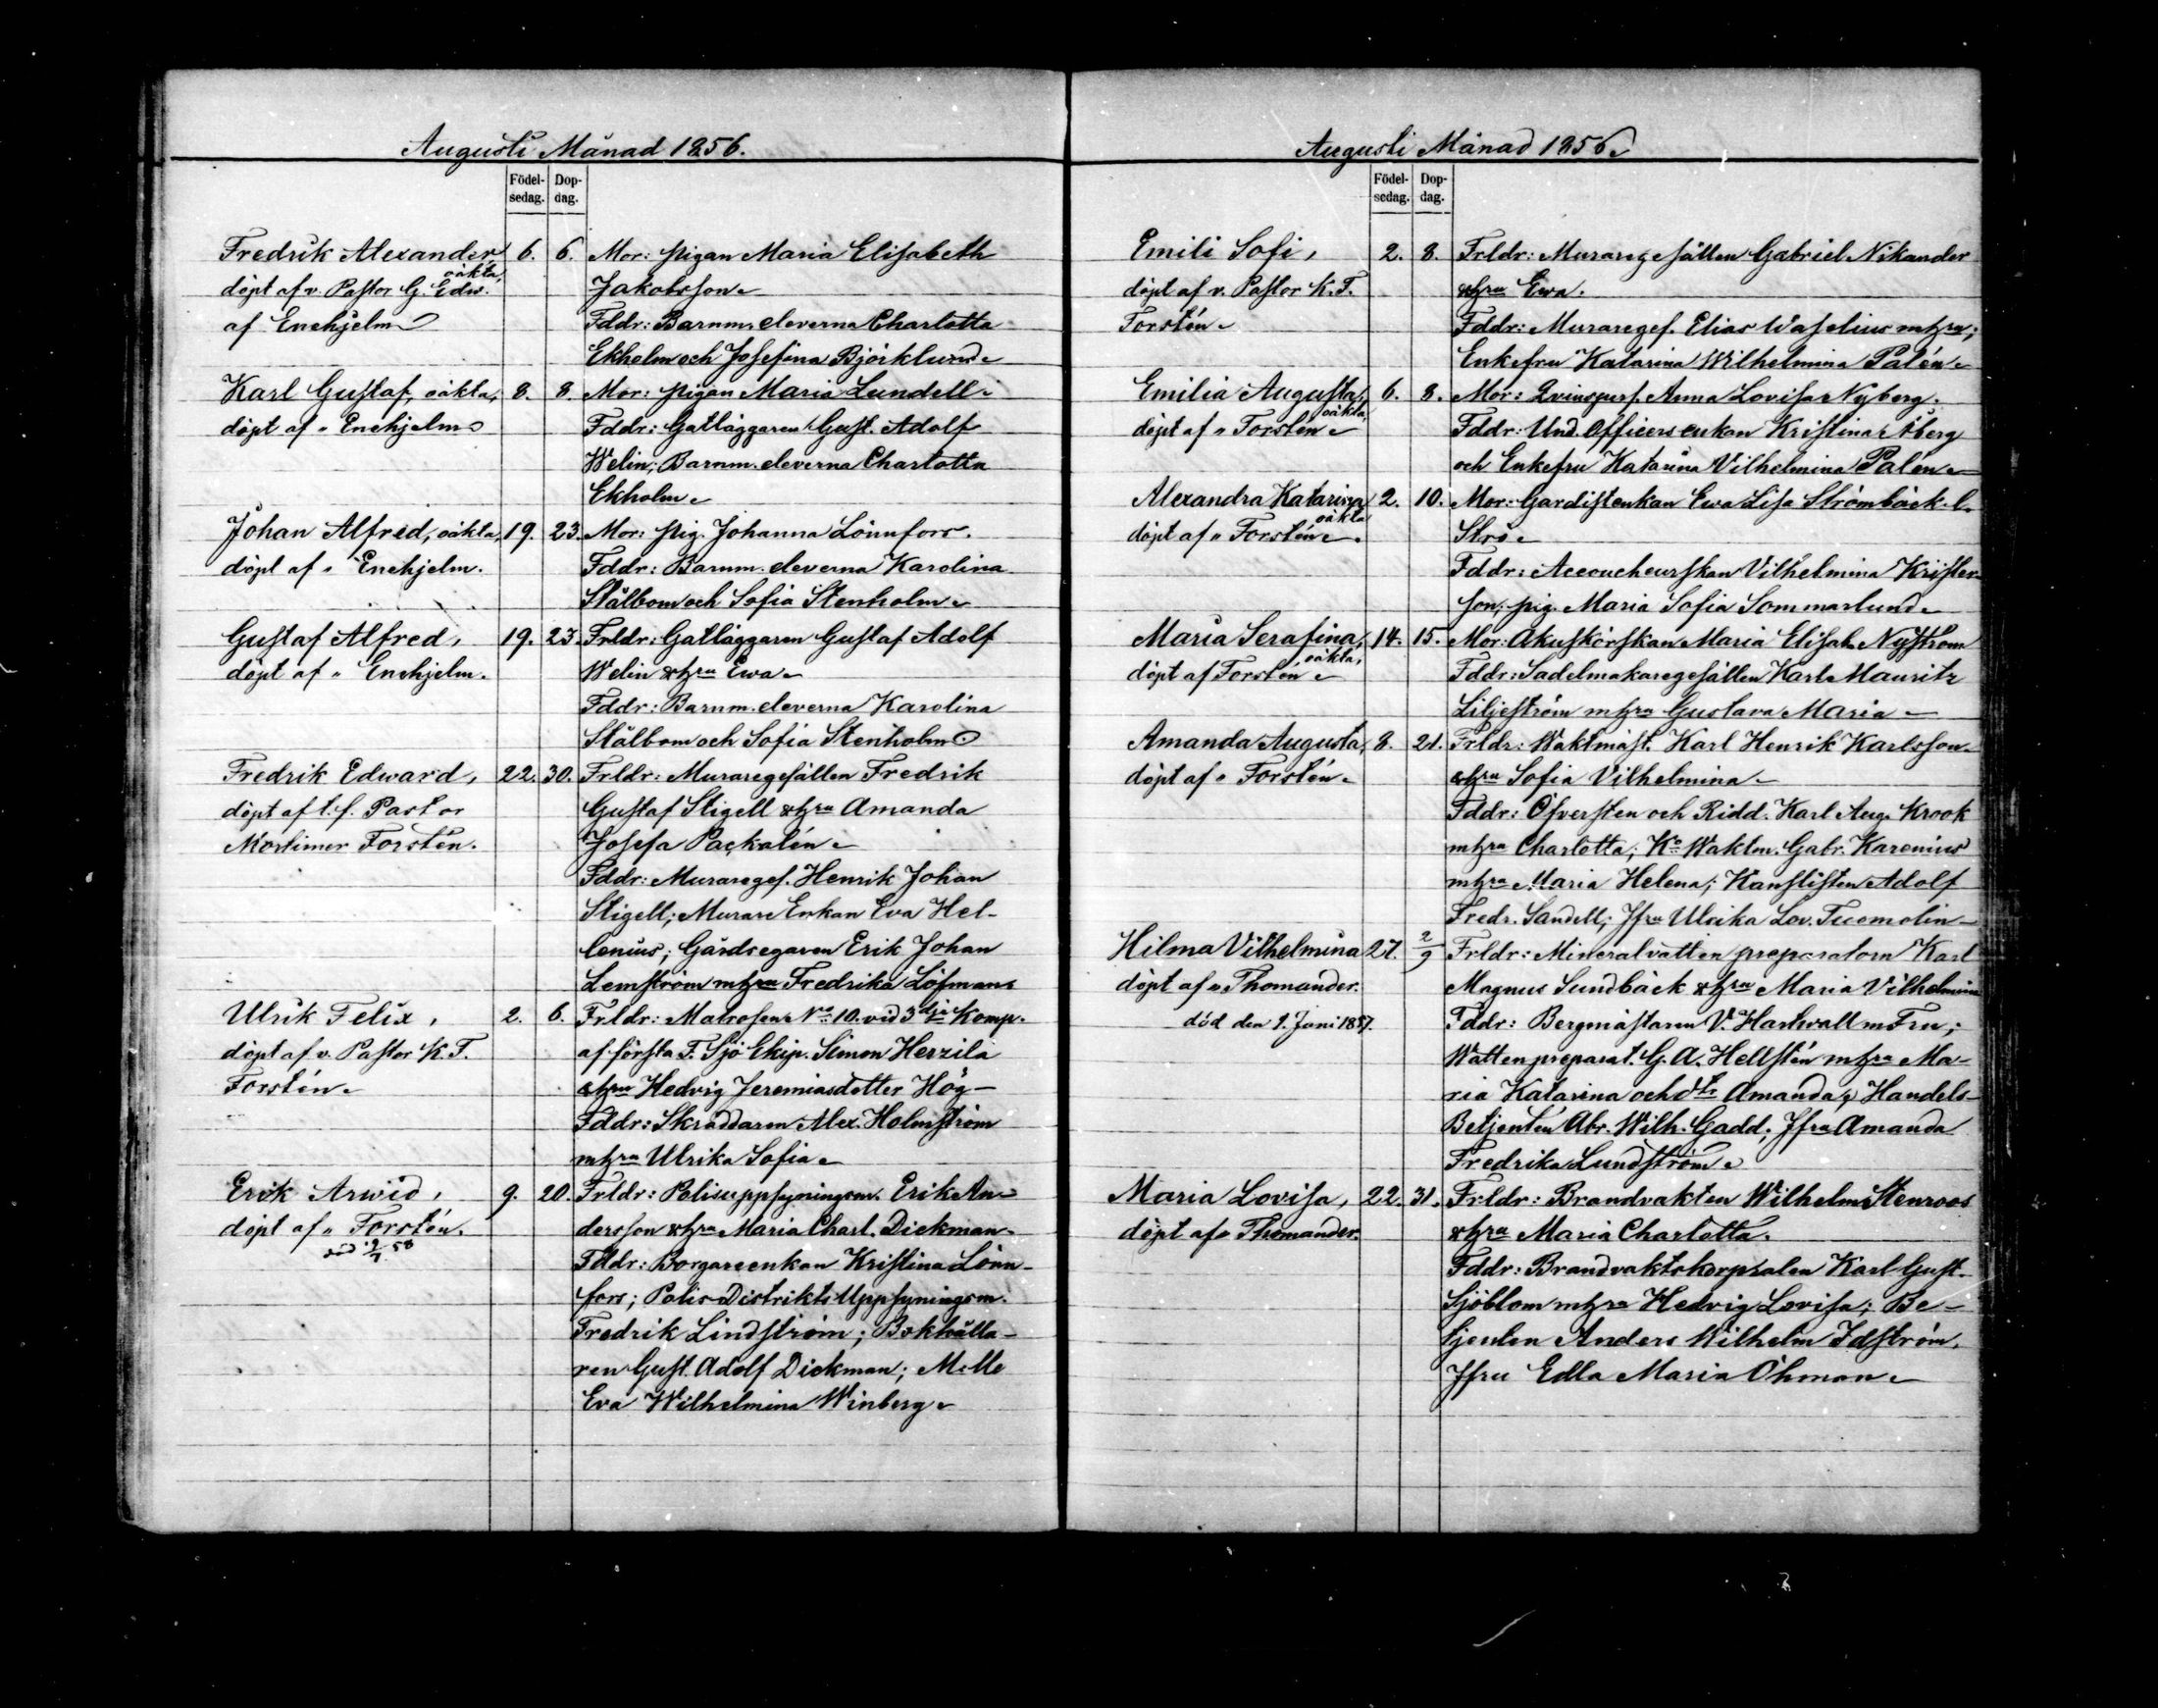 Augusti Månad 1856.
Födel- Dop-
sedag. dag.
Fredrik Alexander 6. 6. Mor: pigan Maria Elisabeth
oäkta
döpt af v. Pastor G. Edw. Jakobsson
af Enehjelm Fddr: Barnm. eleverna Charlotta
Ekholm och Josefina Björklund
Karl Gustaf, oäkta, 8. 8. Mor: pigan Maria Lundell
döpt af " Enehjelm Fddr: Gatläggaren Gust. Adolf
Welin; Barnm. eleverna Charlotta
Ekholm
Johan Alfred, oäkta, 19. 23. Mor: pig. Johanna Lönnfors.
döpt af " Enehjelm. Fddr: Barnm. eleverna Karolina
Stålbom och Sofia Stenholm
Gustaf Alfred, 19. 23. Frldr: Gatläggaren Gustaf Adolf
döpt af " Enehjelm. Welin & hru Ewa
Fddr: Barnm. eleverna Karolina
Stålbom och Sofia Stenholm
Fredrik Edward, 22. 30. Frldr: Muraregesällen Fredrik
döpt af t.f. Pastor Gustaf Stigell & hru Amanda
Mortimer Forstén. Josefa Packalén
Fddr: Murareges. Henrik Johan
Stigell; Murare Enkan Eva Hel-
lenius; Gårdsegaren Erik Johan
Lemström m hru Fredrika Löfman
Ulrik Felix, 2. 6. Frldr: Matrosen No 10. vid 3dje Komp.
döpt af v. Pastor K. T. af första F. Sjö Ekip. Simon Herzila
Forstén & hru Hedvig Jeremiasdotter Hög
Fddr: Skräddaren Alex. Holmström
m hru Ulrika Sofia
Erik Arwid, 9. 20. Frldr: Polisuppsyningsm. Erik An-
döpt af " Forstén. dersson & hru Maria Charl. Dickman
död 9/7 58
Fddr: Borgareenkan Kristina Lönn-
fors; Polis Distrikts Uppsyningsm.
Fredrik Lindström; Bokhålla-
ren Gust. Adolf Dickman; Mlle
Eva Wilhelmina Winberg
Augusti Månad 1856
Födel- Dop-
sedag. dag.
Emili Sofi, 2. 8. Frldr: Muraregesällen Gabriel Nikander
döpt af v. Pastor K. T. & hru Ewa.
Forstén Fddr: Murareges. Elias Waselius m hru;
Enkefru Katarina Wilhelmina Palén
Emilia Augusta, 6. 8. Mor: Qvinspers. Anna Lovisa Nyberg.
oäkta
döpt af " Forstén Fddr: Und. Officersenkan Kristina Åberg
och Enkefru Katarina Vilhelmina Palén
Alexandra Katarina 2. 10. Mor: Gardistenkan Ewa Lisa Strömbäck l.
oäkta
döpt af " Forstén Strö
Fddr: Accoucheurskan Vilhelmina Krister-
son; pig. Maria Sofia Sommarlund
Maria Serafina, 14. 15. Mor: Akuskörskan Maria Elisab. Nyström
oäkta,
döpt af Forstén Fddr: Sadelmakaregesällen Karl Mauritz
Liljeström m hru Gustava Maria
Amanda Augusta, 8. 21. Frldr: Waktmäst. Karl Henrik Karlsson
döpt af " Forstén & hru Sofia Vilhelmina
Fddr: Öfversten och Ridd. Karl Aug. Krook
m hru Charlotta; Ko Waktm. Gabr. Karenius
m hru Maria Helena; Kanslisten Adolf
Fredr. Sandell; Jfru Ulrika Lov. Tuomolin
Hilma Vilhelmina 27. 2/9 Frldr: Mineralvatten preparatorn Karl
döpt af " Thomander. Magnus Sundbäck & hru Maria Vilhelmina
död den 9. Juni 1857. Fddr: Bergmästaren V. Hartwall m Fru;
Watten preparat. G. A. Hellstén m hru Ma-
ria Katarina och dtr Amanda; Handels-
Betjenten Abr. Wilh. Gadd; Jfru Amanda
Fredrika Lundström
Maria Lovisa, 22. 31. Frldr: Brandvakten Wilhelm Stenroos
döpt af " Thomander. & hru Maria Charlotta.
Fddr: Brandvaktskorpralen Karl Gust.
Sjöblom m hru Hedvig Lovisa; Be-
tjenten Anders Wilhelm Idström.
Jfru Edla Maria Öhman